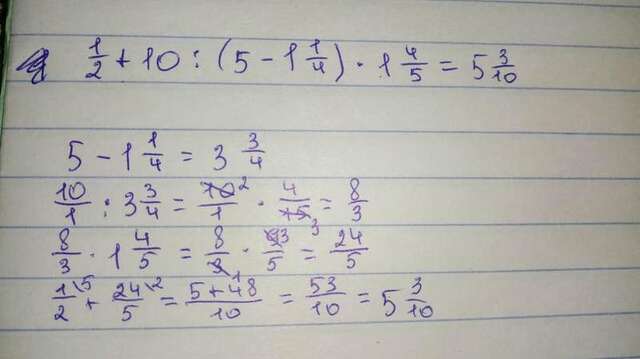 1/2 + 10 : (5 - 1 1/4) · 1 4/5 = 5 3/10
5 - 1 1/4 = 3 3/4
10/1 : 3 3/4 = 10²/1 · 4/15₃ = 8/3
8/3 · 1 4/5 = 8/3₁ · 9³/5 = 24/5
1\5/2 + 24\2/5 = 5+48/10 = 53/10 = 5 3/10